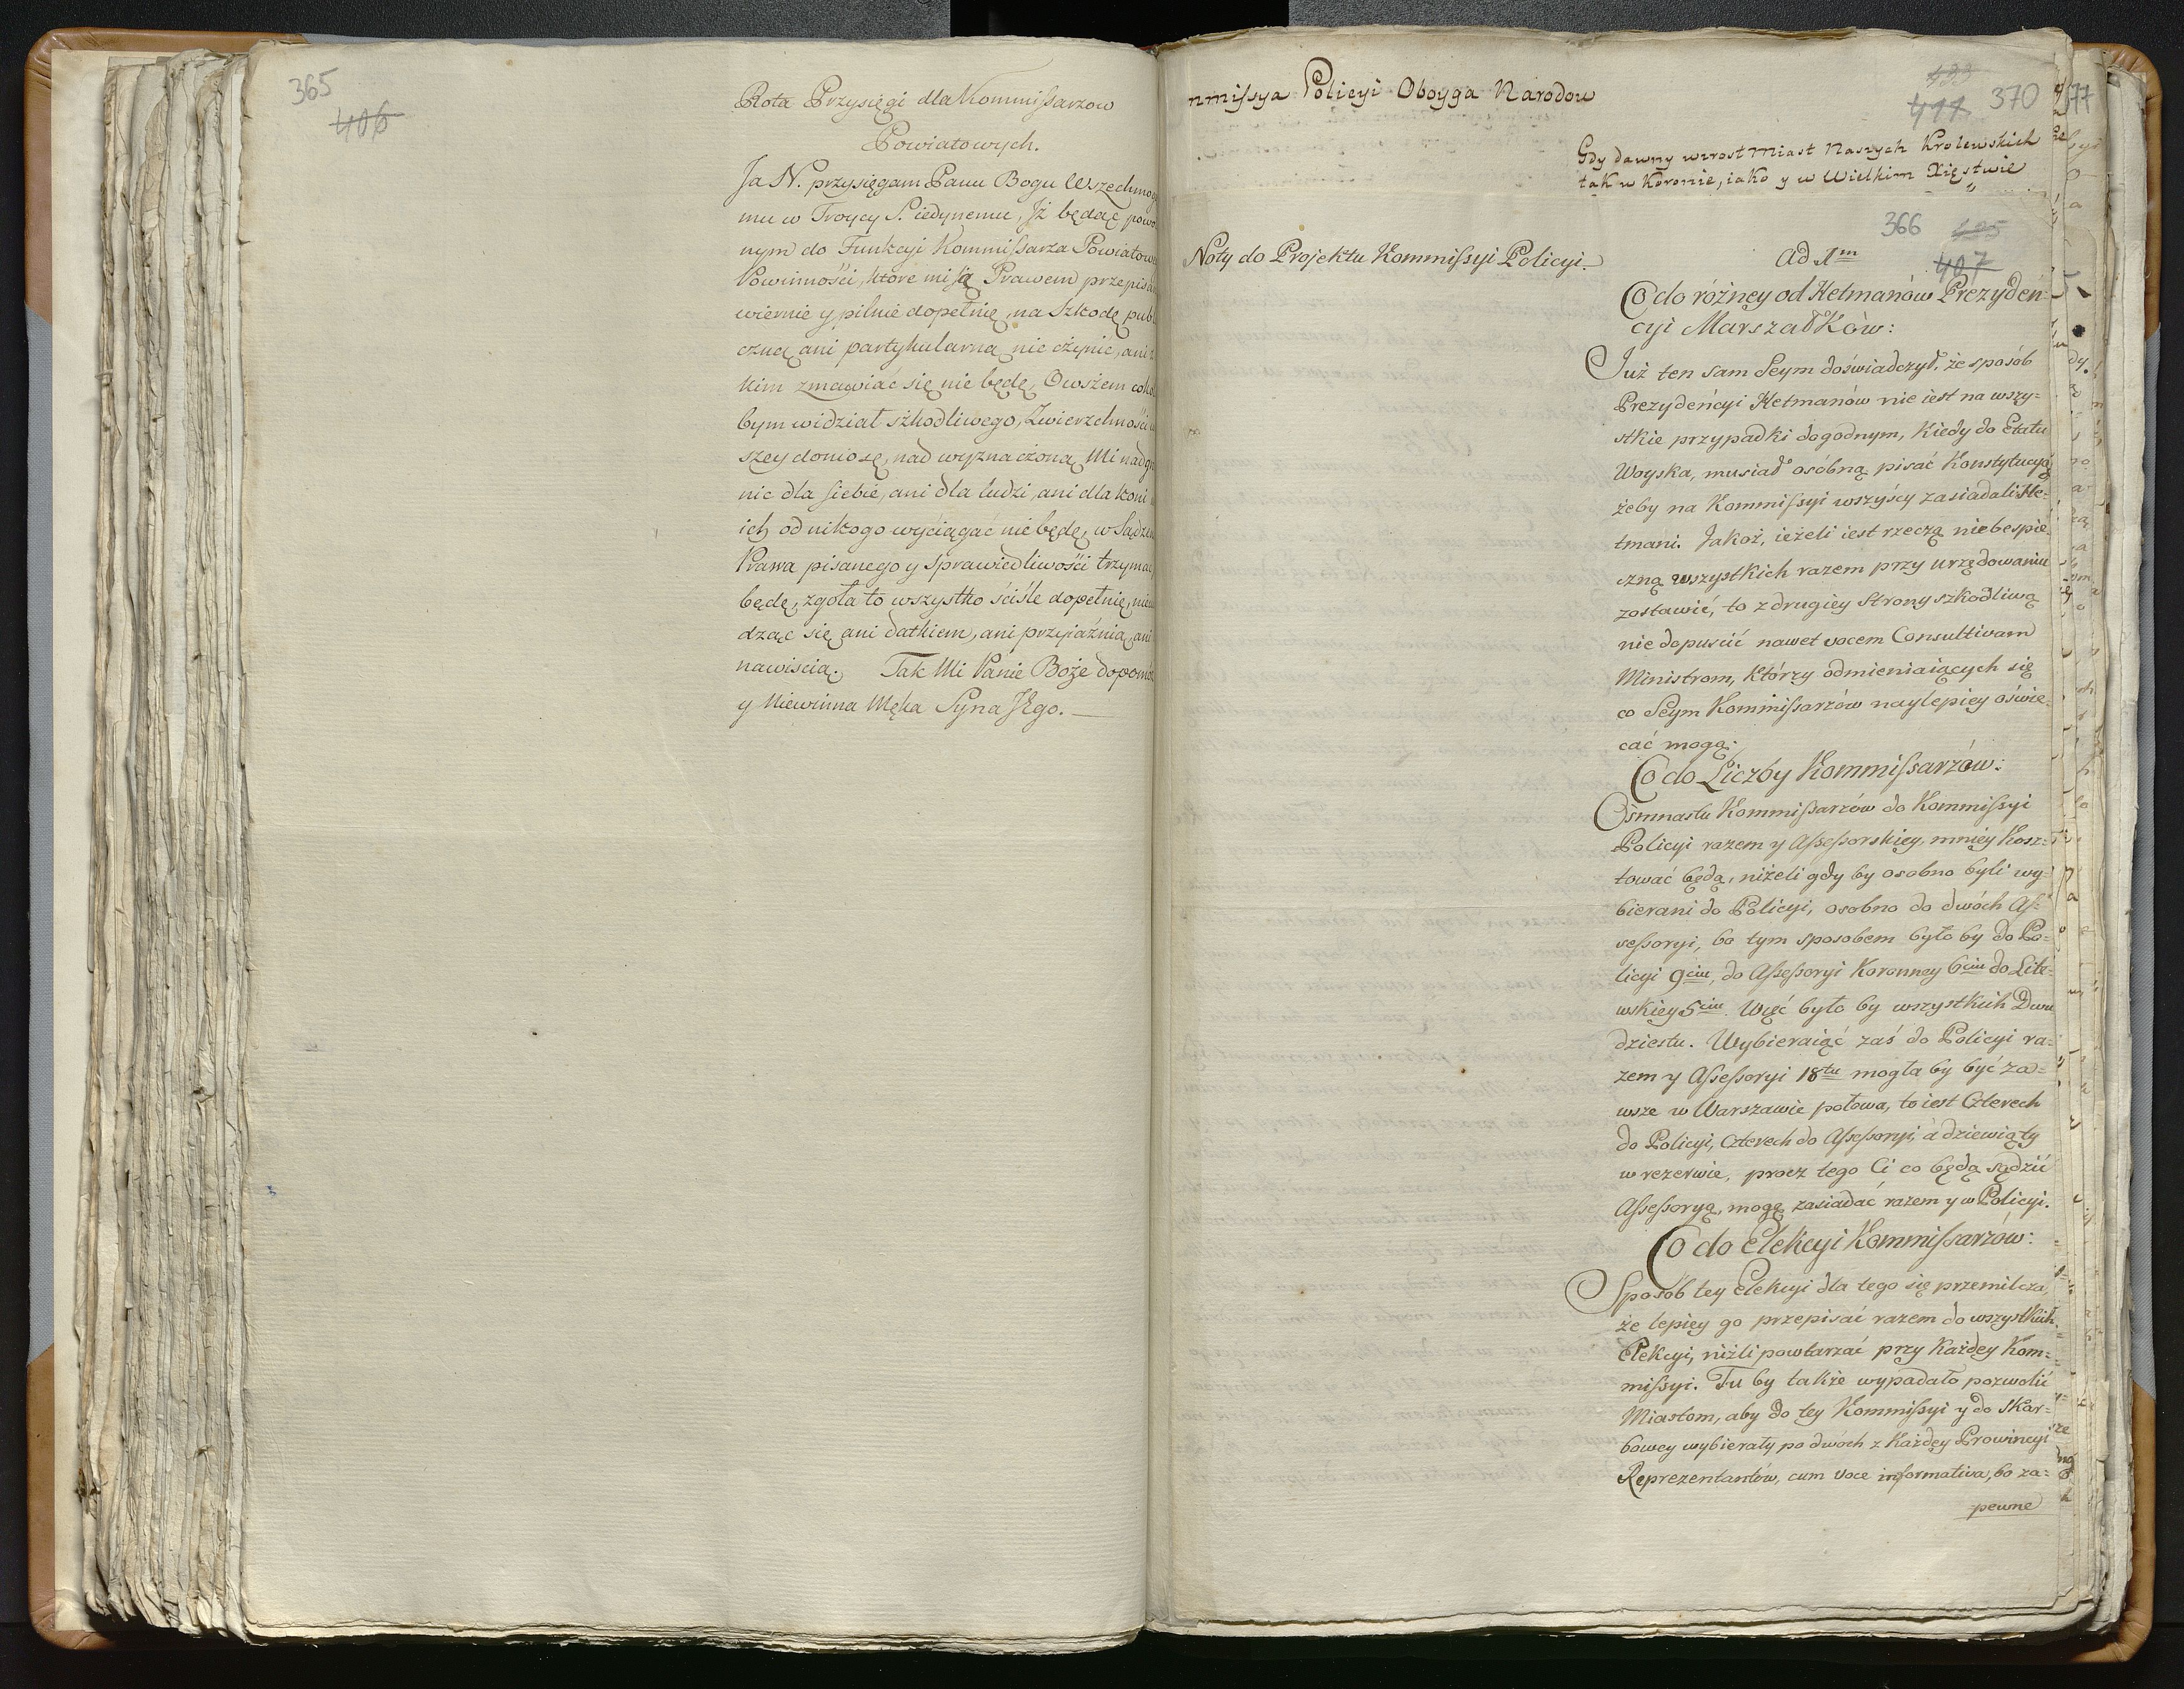 365
406
Rota Przysięgi dla Kommissarzow
Powiatowych.
Ja N. przysięgam Panu Bogu Wszechmog
mu w Troycy S. iedynemu, Jż będąc powo
nym do Funkcyi Kommissarza Powiatow
Powinności, ktore mi są Prawem przepisa
wiernie y pilnie dopełnię, na Szkodę pub
czną ani partykularną nic czynić, ani z
kim zmawiać się nie będę, Owszem coko
bym widział szkodliwego, Zwierzchności
szey doniosę, nad wyznaczoną Mi nadgr
nic dla siebie, ani dla ludzi, ani dla koni
ich od nikogo wyciągać nie będę, w Sądze
Prawa pisanego y sprawiedliwości trzymać
będę, zgoła to wszystko ściśle dopełnię, nie
dząc się ani datkiem, ani przyiaźnią, ani
nawiscią. Tak Mi Panie Boże dopomoż
y Niewinna Męka Syna JEgo.
nmissya Policyi Oboyga Narodow
433
411 370
Gdy dawny wzrost Miast Naszych Krolewskich
tak w Koronie, iako y w Wielkim Xięstwie
366
407
Noty do Projektu Kommissyi Policyi.
Ad 1m
Co do różney od Hetmanów Prezyden-
cyi Marszałków:
Już ten sam Seym doświadczył, że sposób
Prezydencyi Hetmanów nie iest na wszy=
stkie przypadki dogodnym, kiedy do Etatu
Woyska, musiał osóbną pisać Konstytucyą
żeby na Kommissyi wszyścy zasiadali He=
tmani. Jakoż, ieżeli iest rzeczą niebespie=
czną wszystkich razem przy urzędowaniu
zostawić, to z drugiey Strony szkodliwą
nie dopuscić nawet vocem Consultivam
Ministrom, którzy odmieniaiących się
co Seym Kommissarzów naylepiey oświe=
cać mogą:
Co do Liczby Kommissarzów:
Ośmnastu Kommissarzów do Kommissyi
Policyi razem y Assessorskiey, mniey kosz=
tować będą, niżeli gdy by osobno byli wy=
bierani do Policyi, osobno do dwóch As=
sessoryi, bo tym sposobem było by do Po=
licyi 9ciu, do Assessoryi Koronney 6ciu do Lite=
wskiey 5ciu. Więć było by wszystkich Dwu
dziestu. Wybieraiąć zaś do Policyi ra=
zem y Assessoryi 18tu mogła by być za=
wsze w Warszawie połowa, to iest Czterech
do Policyi, Czterech do Assessoryi, a dziewiąty
w rezerwie, procz tego Ci co będą sądzić
Assessoryą, mogą zasiadać razem y w Policyi.
Co do Elekcyi Kommissarzów:
Sposób tey Elekcyi dla tego się przemilcza,
że lepiey go przepisać razem do wszystkich
Elekcyi, niżli powtarzać przy Każdey Kom=
missyi. Tu by także wypadało pozwolić
Miastom, aby do tey Kommissyi y do Skar=
bowey wybierały po dwóch z Każdey Prowincyi
Reprezentantów, cum voce informativa, bo za=
pewne